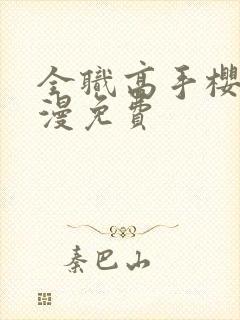 全職高手櫻
漫免費
秦巴山